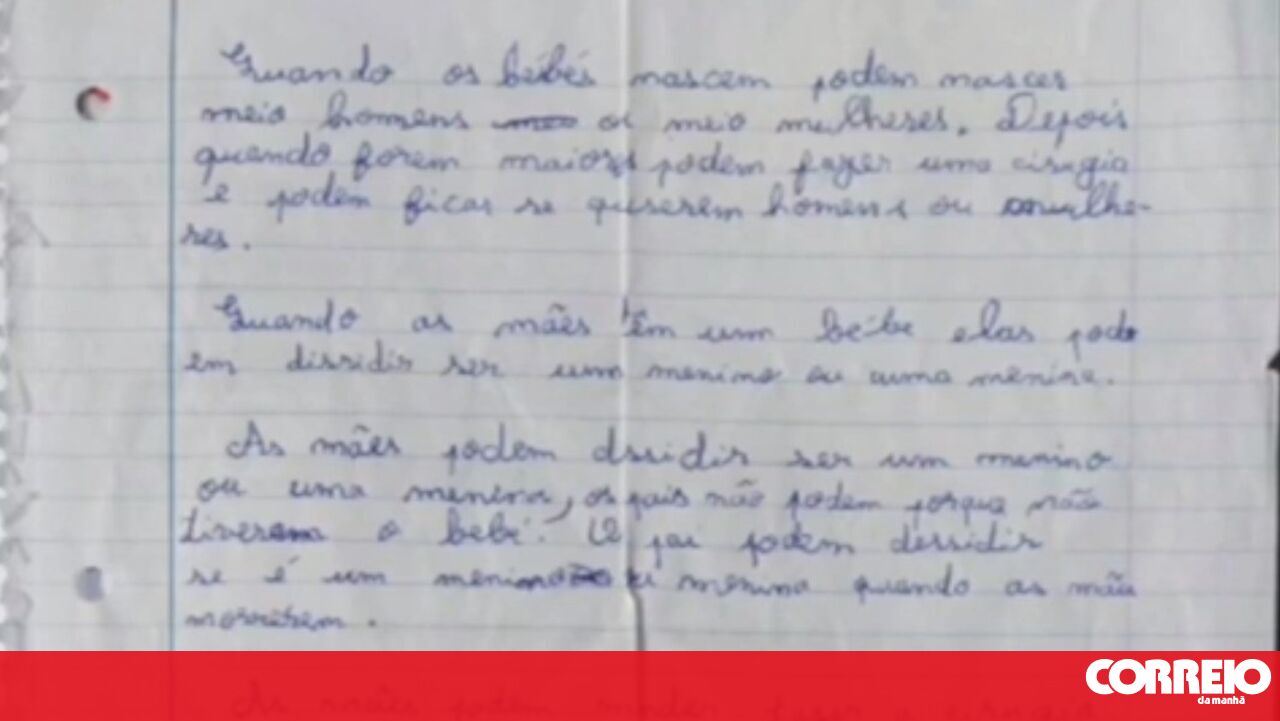 Quando os bébés nascem podem nascer
meio homens ou meio mulheres. Depois
quando forem maiores podem fazer uma cirugia
e podem ficar se quiserem homens ou mulhe-
res.
Quando as mães têm um bébe elas pod
em dissidir ser um menino ou uma menina.
As mães podem dssidir ser um menino
ou uma menina, os pais não podem porque não
tiveram o bebé. O pai podem dessidir
se é um menino ou menina quando as mães
morrerem.
CORREIO
da manhã